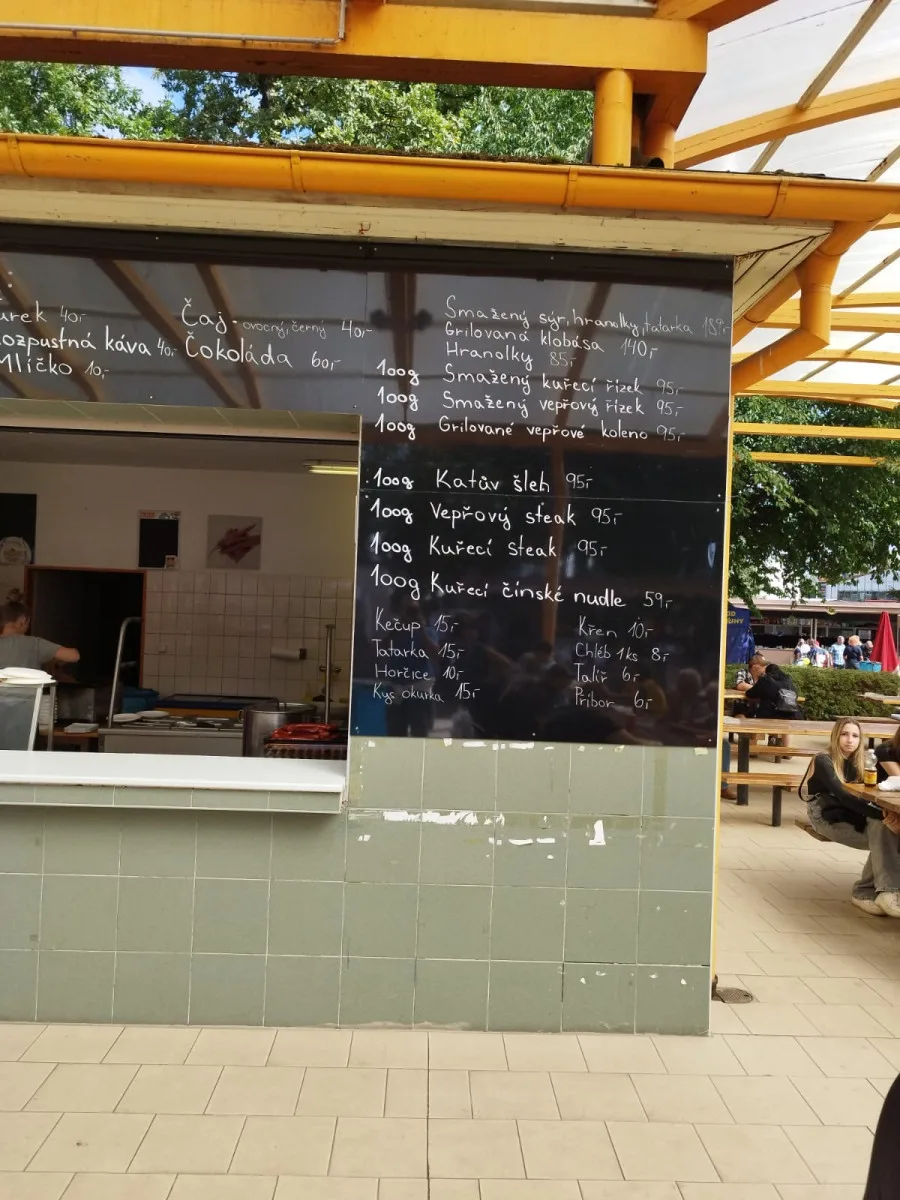 urek 40,-
ozpustná káva 40,-
Mlíčko 10,-
Čaj - ovocný, černý 40,-
Čokoláda 60,-
Smažený sýr, hranolky, tatarka
Grilovaná klobása 140,-
Hranolky 85,-
100g Smažený kuřecí řízek 95,-
100g Smažený vepřový řízek 95,-
100g Grilované vepřové koleno 95,-
100g Katův šleh 95,-
100g Vepřový steak 95,-
100g Kuřecí steak 95,-
100g Kuřecí čínské nudle 59,-
Kečup 15,-
Tatarka 15,-
Horčice 10,-
Kys okurka 15,-
Křen 10,-
Chléb 1ks 8,-
Talíř 6,-
Příbor 6,-